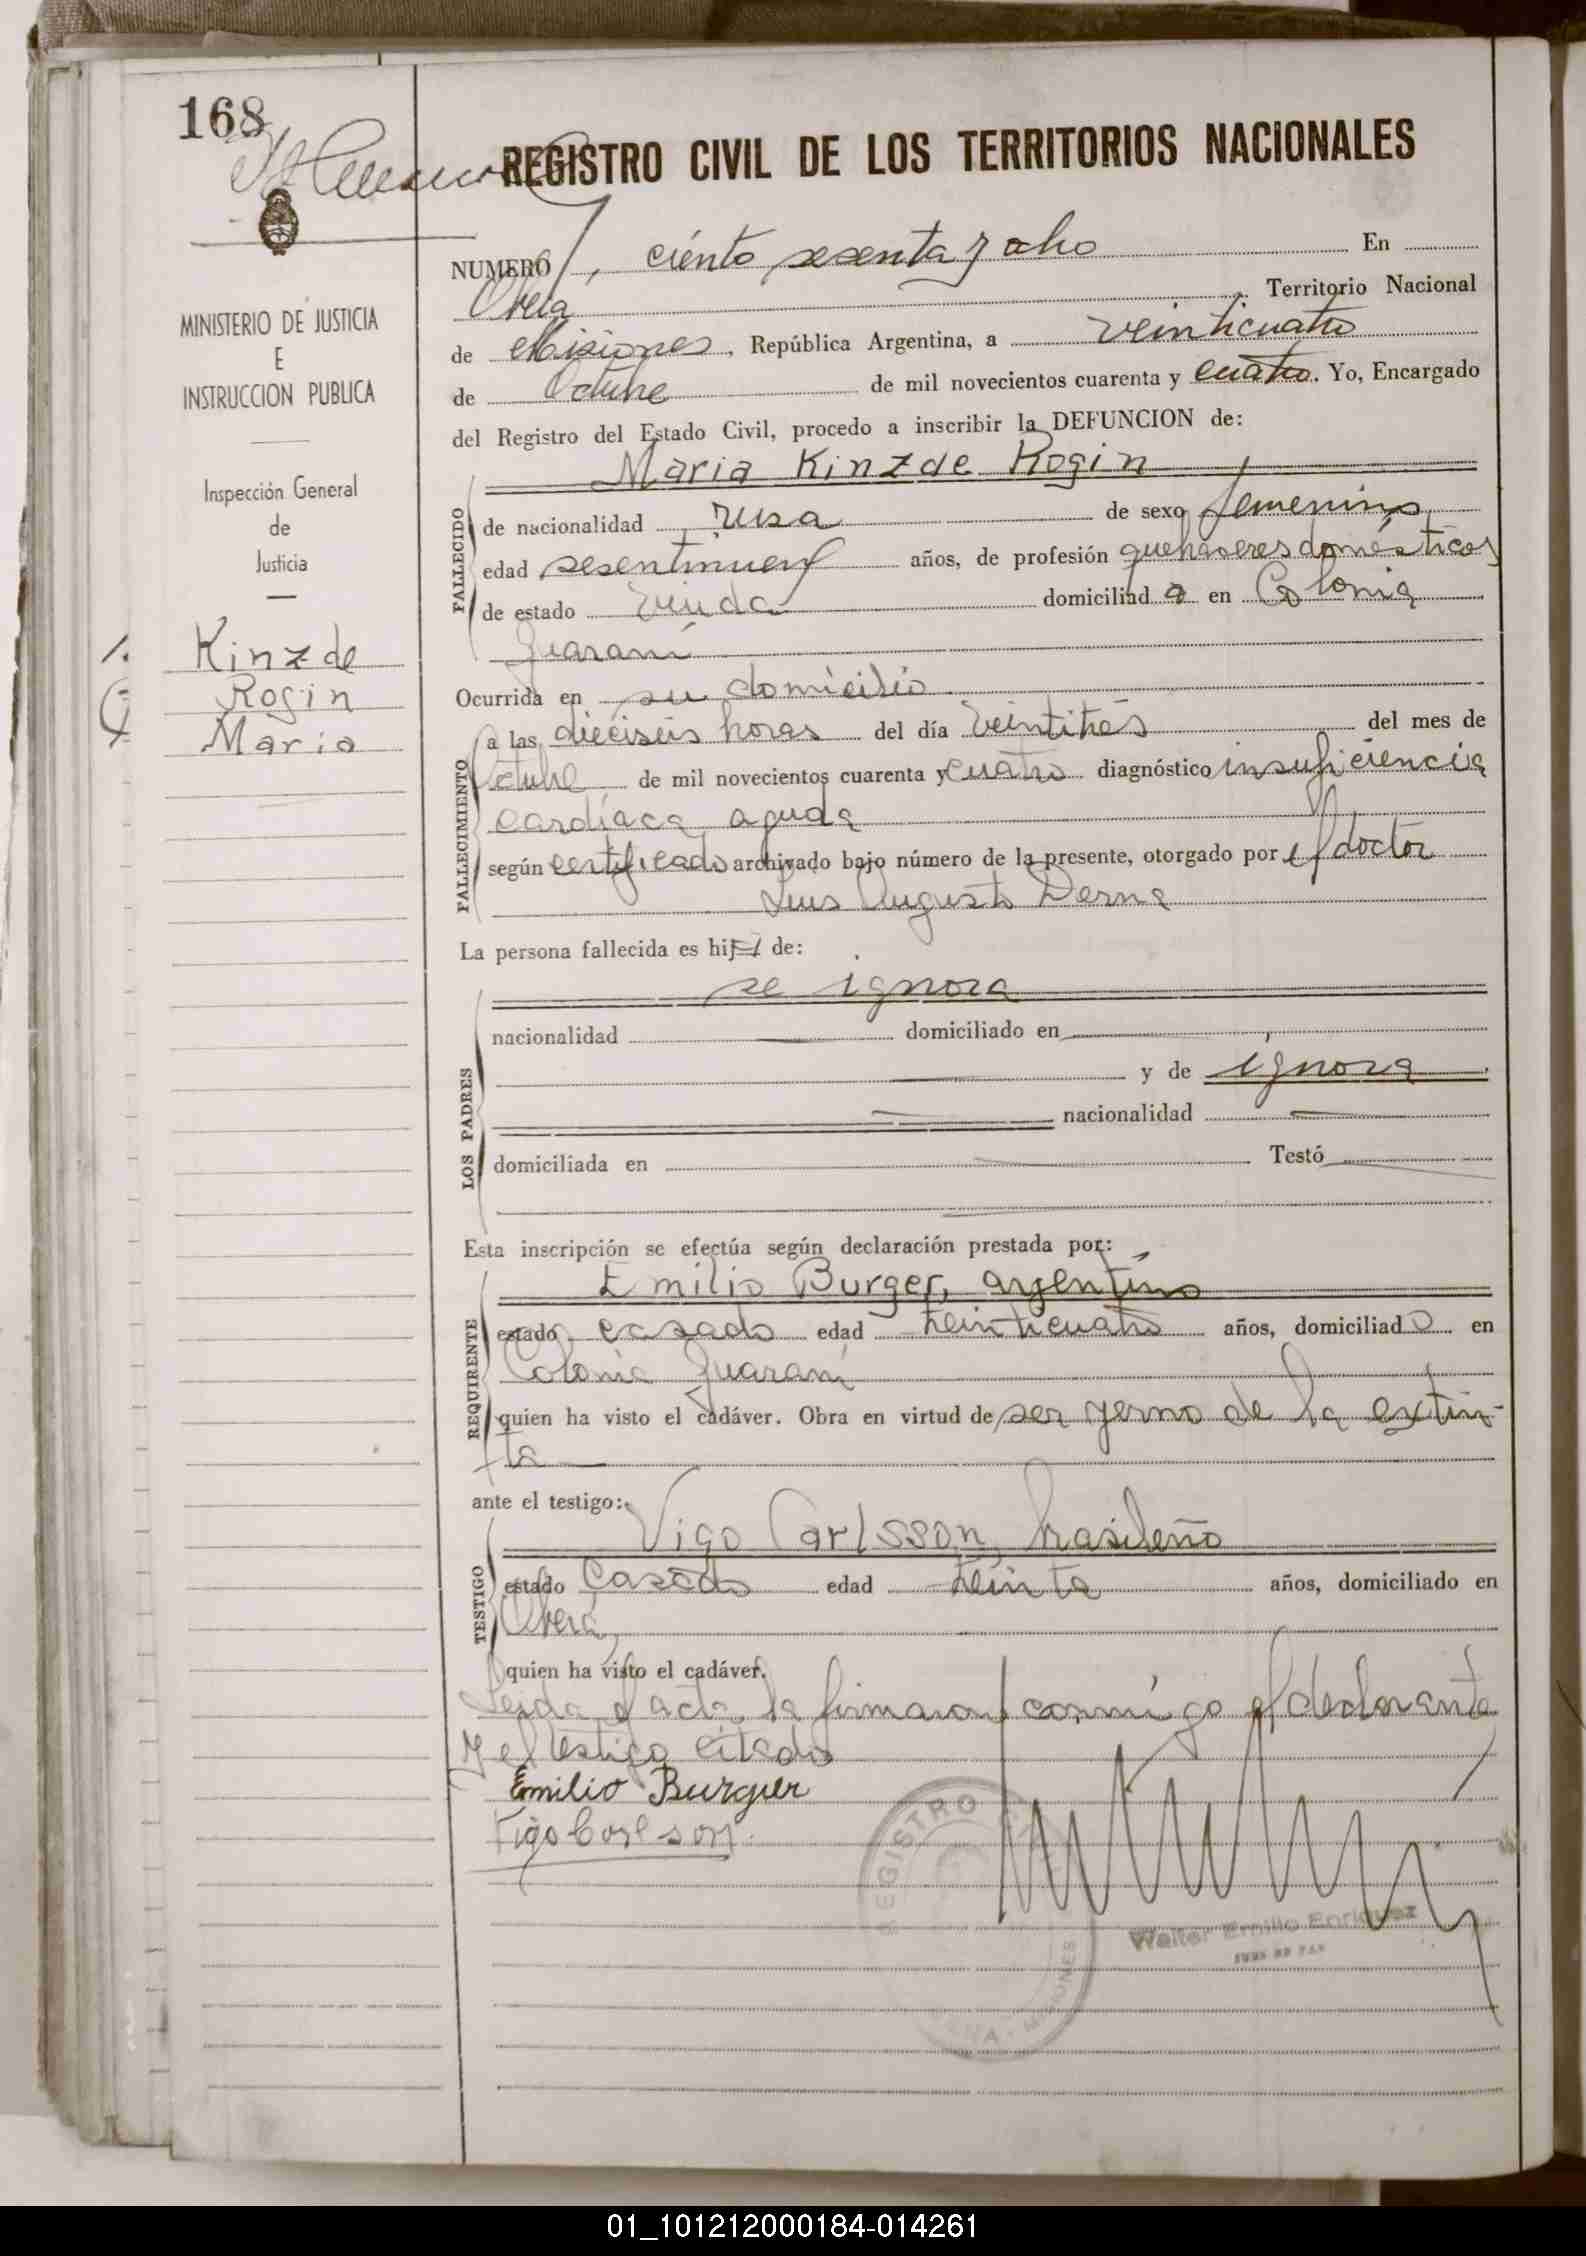 168
REGISTRO CIVIL DE LOS TERRITORIOS NACIONALES
MINISTERIO DE JUSTICIA
E
INSTRUCCION PUBLICA
Inspección General
de
Justicia
Kinz de
Rogin
Maria
NUMERO, ciento sesenta y ocho En
Oberá, Territorio Nacional
de Misiones, República Argentina, a veinticuatro
de Octubre de mil novecientos cuarenta y cuatro. Yo, Encargado
del Registro del Estado Civil, procedo a inscribir la DEFUNCION de:
Maria Kinz de Rogin
FALLECIDO
de nacionalidad rusa de sexo femenino
edad sesentinueve años, de profesión quehaceres domésticos
de estado viuda domiciliad a en Colonia
Guaraní
Ocurrida en su domicilio
FALLECIMIENTO
a las dieciseis horas del día veintitrés del mes de
Octubre de mil novecientos cuarenta y cuatro diagnóstico insuficiencia
cardíaca aguda
según certificado archivado bajo número de la presente, otorgado por el doctor
Luis Augusto Derna
La persona fallecida es hija de:
LOS PADRES
se ignora
nacionalidad domiciliado en
y de ignora
nacionalidad
domiciliada en Testó
Esta inscripción se efectúa según declaración prestada por:
REQUIRENTE
Emilio Burger, argentino
estado casado edad treinticuatro años, domiciliado en
Colonia Guaraní
quien ha visto el cadáver. Obra en virtud de ser yerno de la extin-
ta
ante el testigo:
TESTIGO
Vigo Carlsson, brasileño
estado casado edad treinta años, domiciliado en
Oberá,
quien ha visto el cadáver.
Leida el acta, la firmaron conmigo el declarante
y el testigo citado
Emilio Burger
Vigo Carlsson.
REGISTRO
MISIONES
Walter Emilio Enriquez
JUEZ DE PAZ
01_101212000184-014261